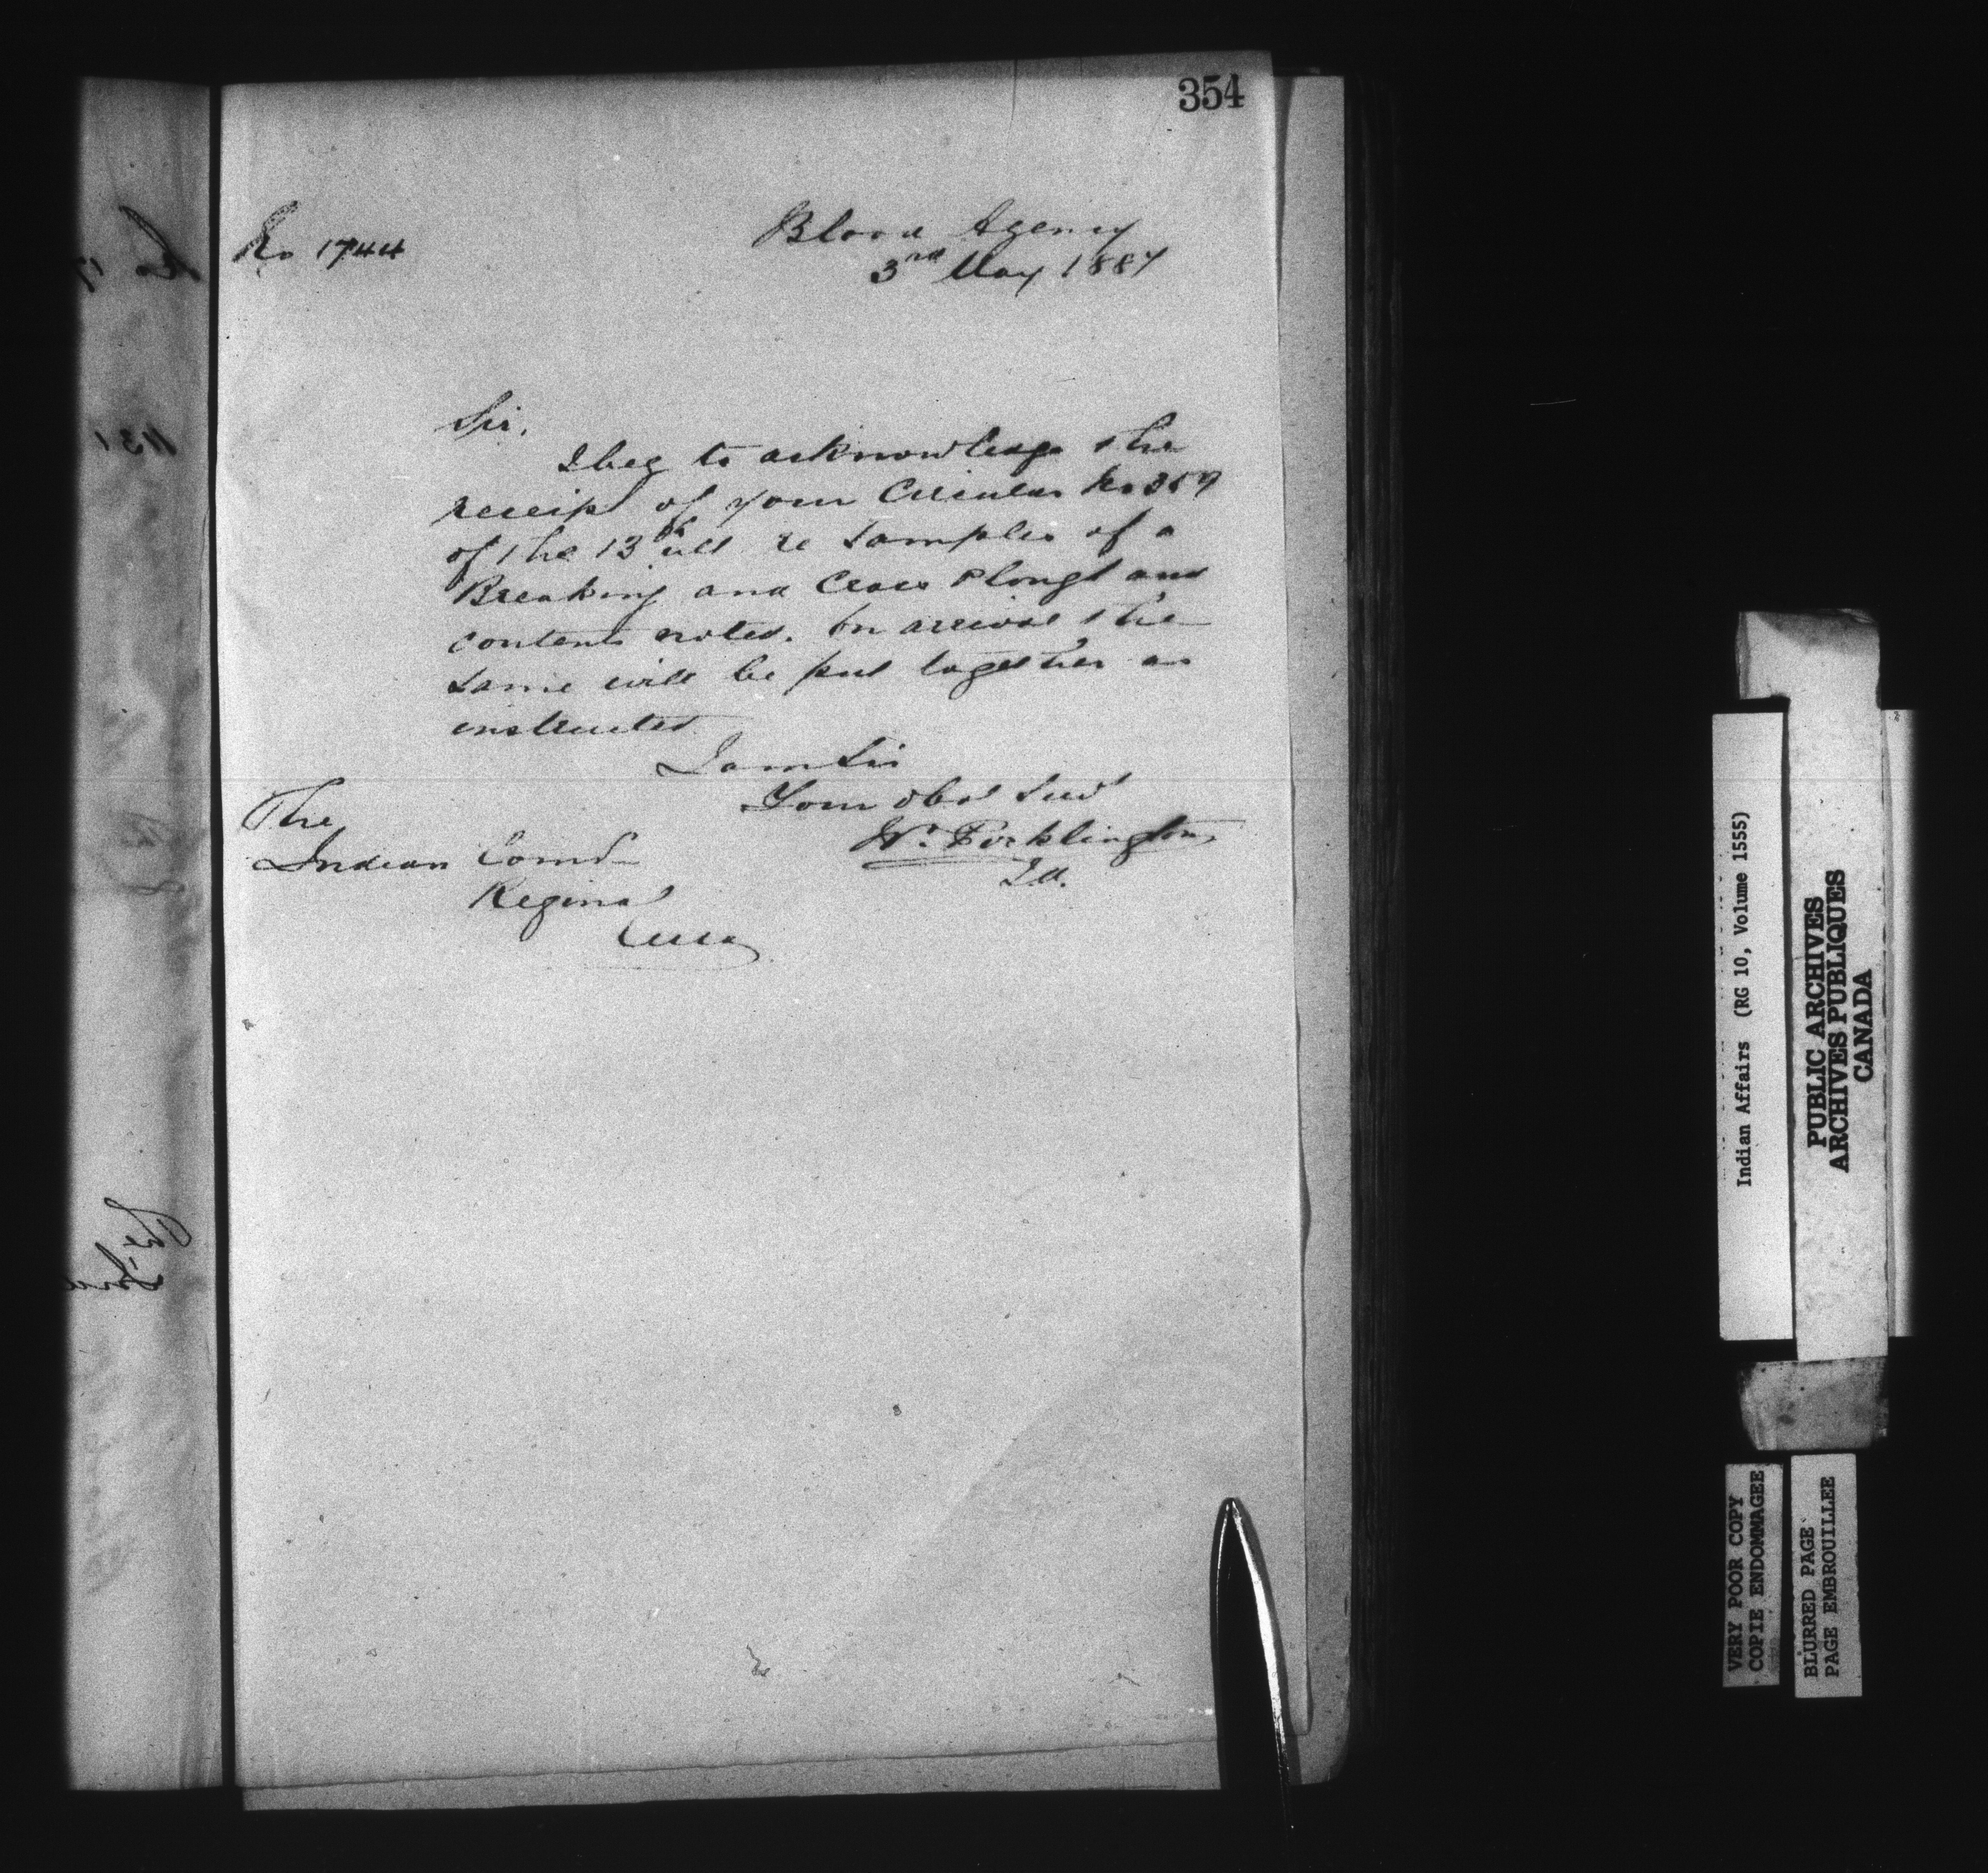 354
No 1744
Blood Agency
3rd May 1887
Sir,
I beg to acknowledge the
receipt of your Circular No 359
of the 13th ult re samples of a
Breaking and Cross Plough and
contents noted. On arrival the
same will be put together as
instructed.
I am Sir
Your obed Servt
Wm. Pocklington
I.A.
The
Indian Comr
Regina
Assa
Indian Affairs (RG 10, Volume 1555)
PUBLIC ARCHIVES
ARCHIVES PUBLIQUES
CANADA
VERY POOR COPY
COPIE ENDOMMAGEE
BLURRED PAGE
PAGE EMBROUILLEE